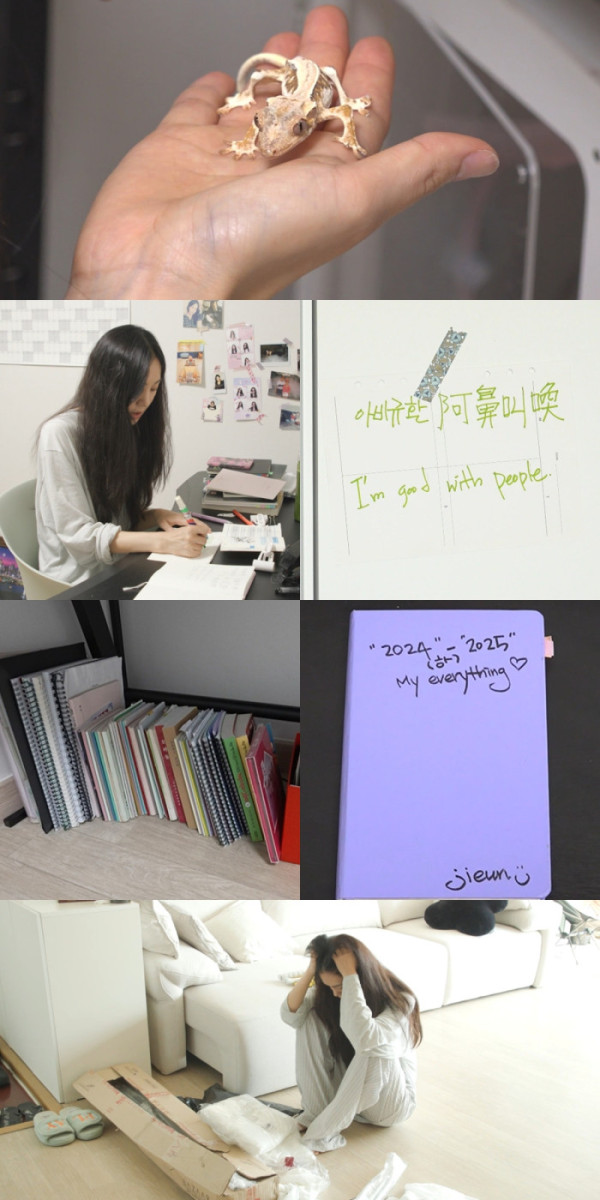 아비규환 阿鼻叫喚
I'm good with people.
"2024" - "2025"
(하)
My everything ♡
jieun :)